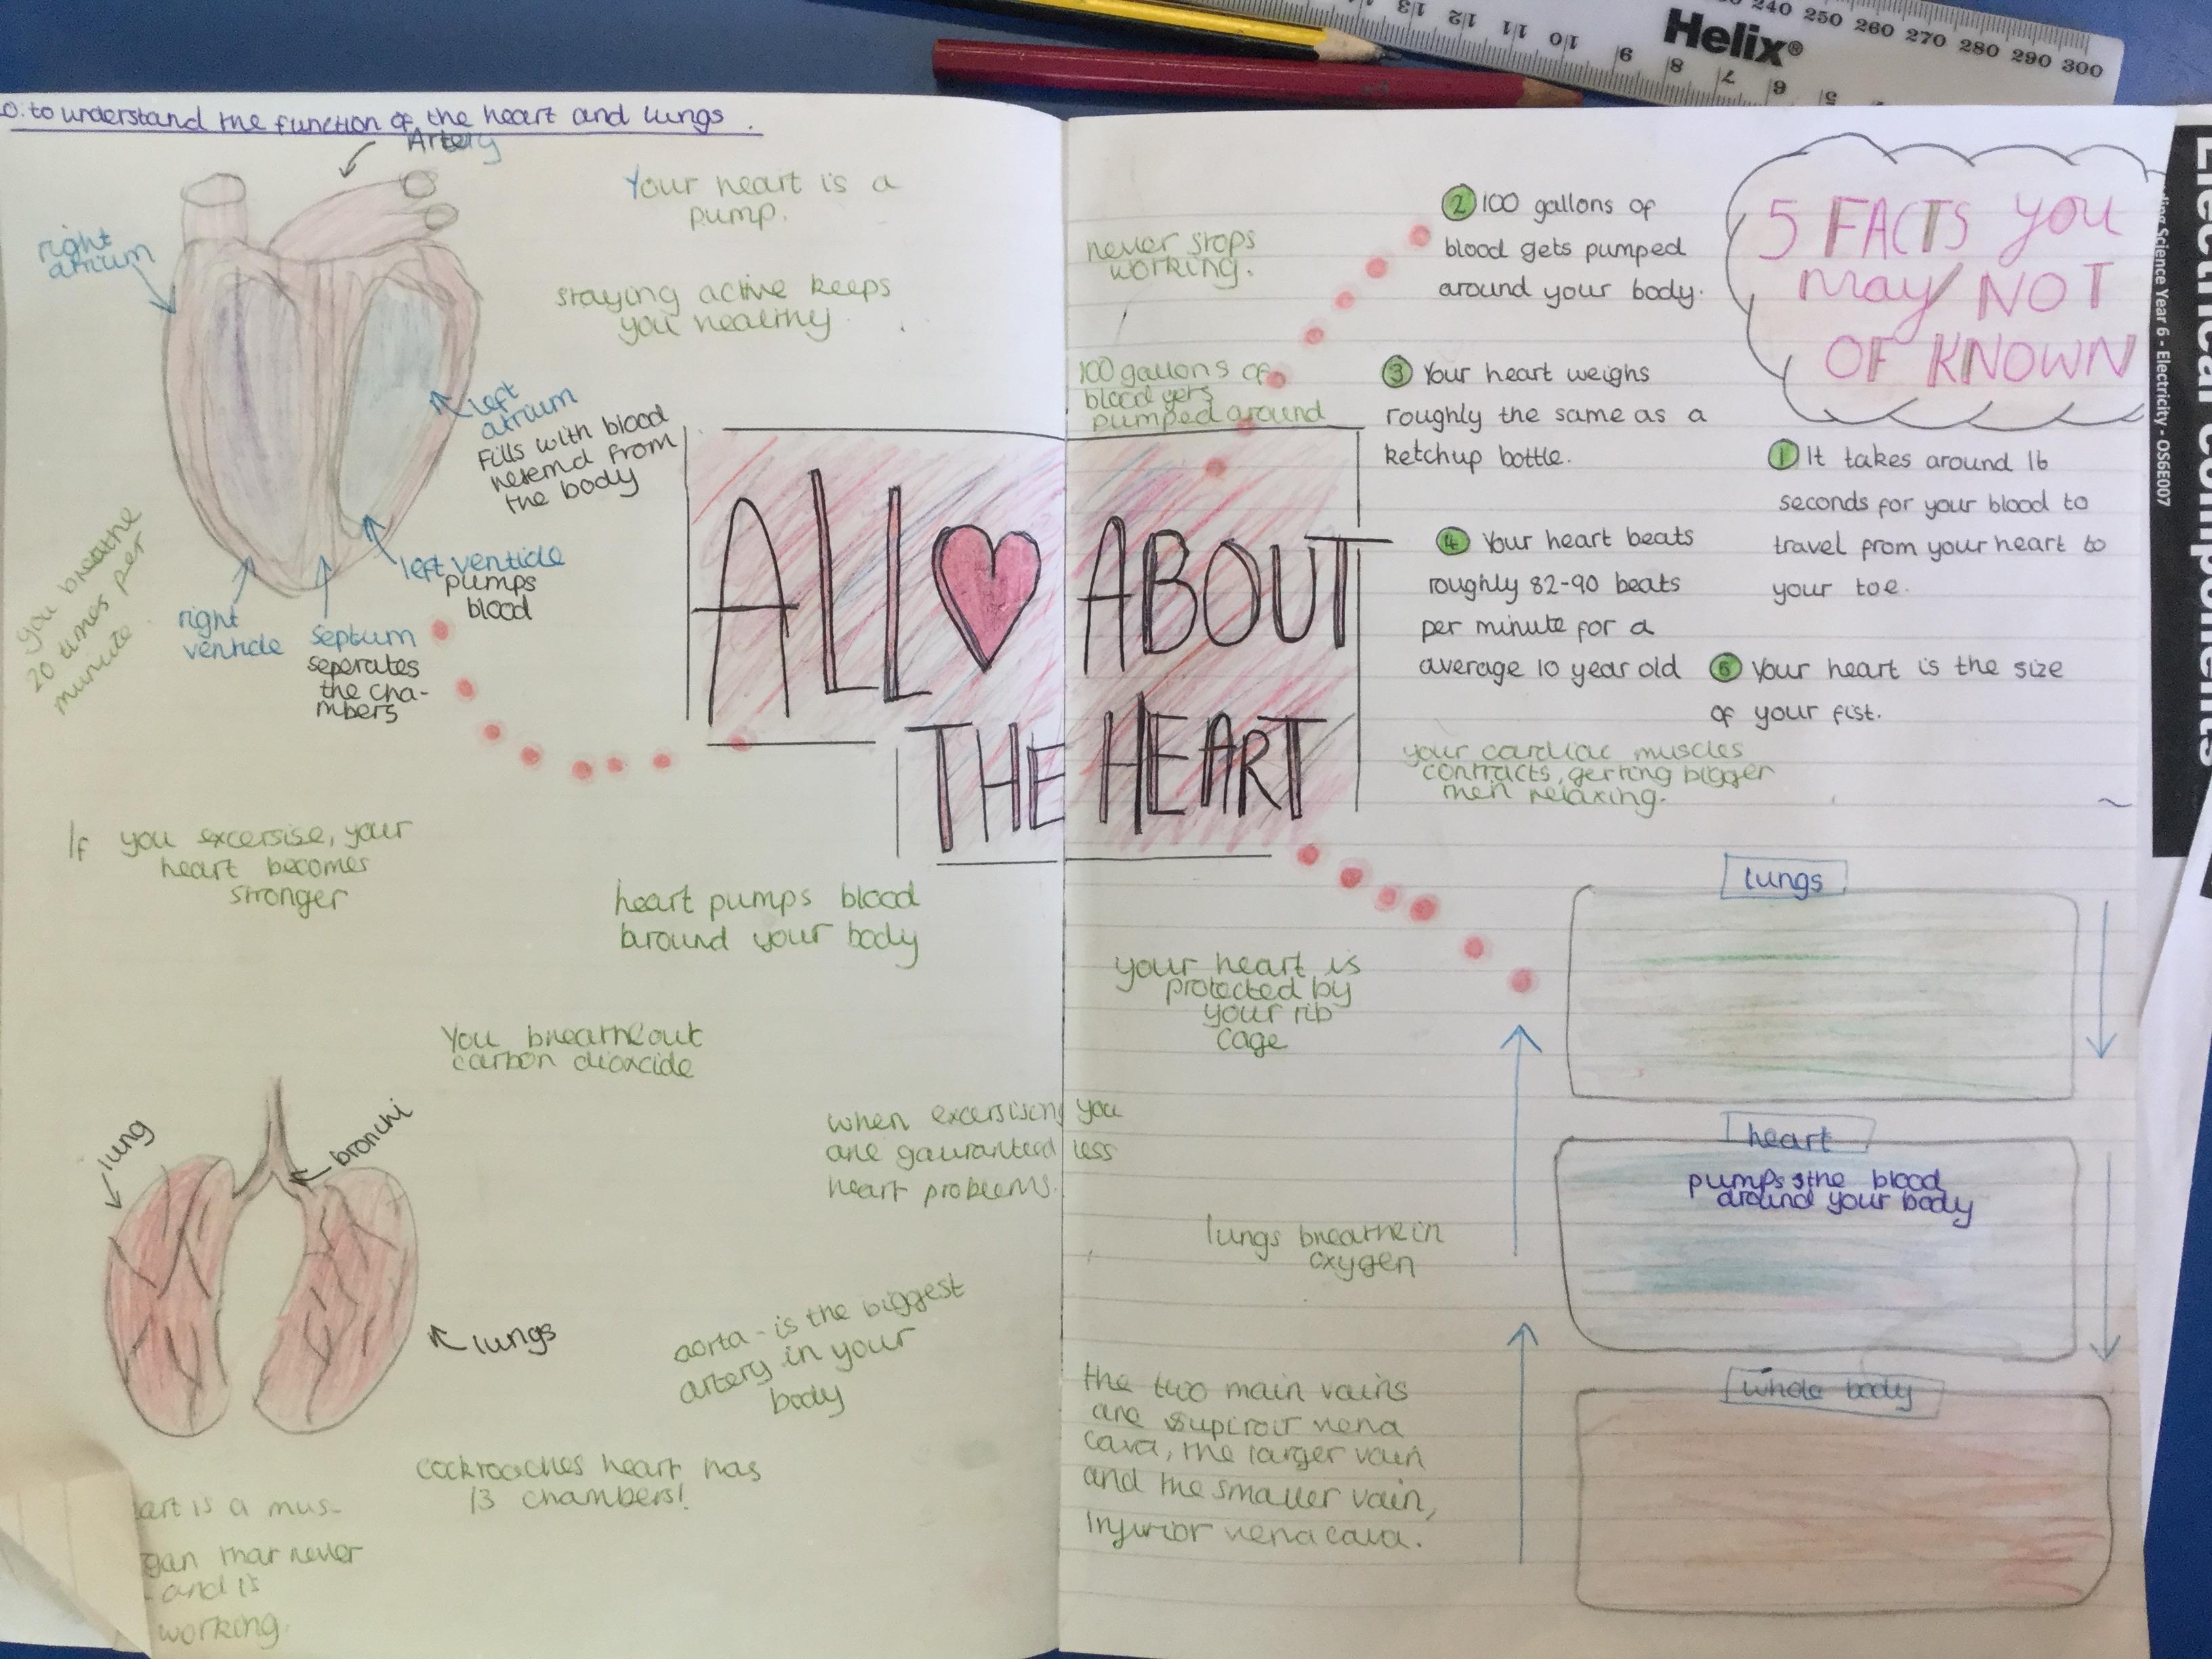 O: to understand the function of the heart and lungs.
Artery
right
atrium
left
atrium
fills with blood
from
the body
left ventide
pumps
blood
right
ventide
septum
seperates
the cha-
mbers
you breathe
20 times per
minute
Your heart is a
pump.
staying active keeps
you healthy
ALL ABOUT
THE HEART
If you excersise, your
heart becomes
stronger
heart pumps blood
around your body
You breathe out
carbon dioxcide
when excersising you
are gauranteed less
heart problems.
lung
bronchi
lungs
aorta - is the biggest
artery in your
body
cockroaches heart has
13 chambers!
eart is a mus-
gan that never
and is
working.
never stops
working.
100 gallons of
blood gets
pumped around
5 FACTS you
may NOT
OF KNOWN
1 It takes around 16
seconds for your blood to
travel from your heart to
your toe.
2 100 gallons of
blood gets pumped
around your body.
3 Your heart weighs
roughly the same as a
ketchup bottle.
4 Your heart beats
roughly 82-90 beats
per minute for a
average 10 year old
5 Your heart is the size
of your fist.
your cardiac muscles
contracts, getting bigger
then relaxing.
your heart is
protected by
your rib
cage
lungs breathe in
oxygen
the two main vains
are supiroir vena
cava, the larger vain
and the smaller vain,
injurior vena cava.
lungs
heart
pumps the blood
around your body
whole body
Helix®
240 250 260 270 280 290 300
13 12 11 10 9 8 7 6 5
Electrical Components
Science Year 6 - Electricity - OS6E007